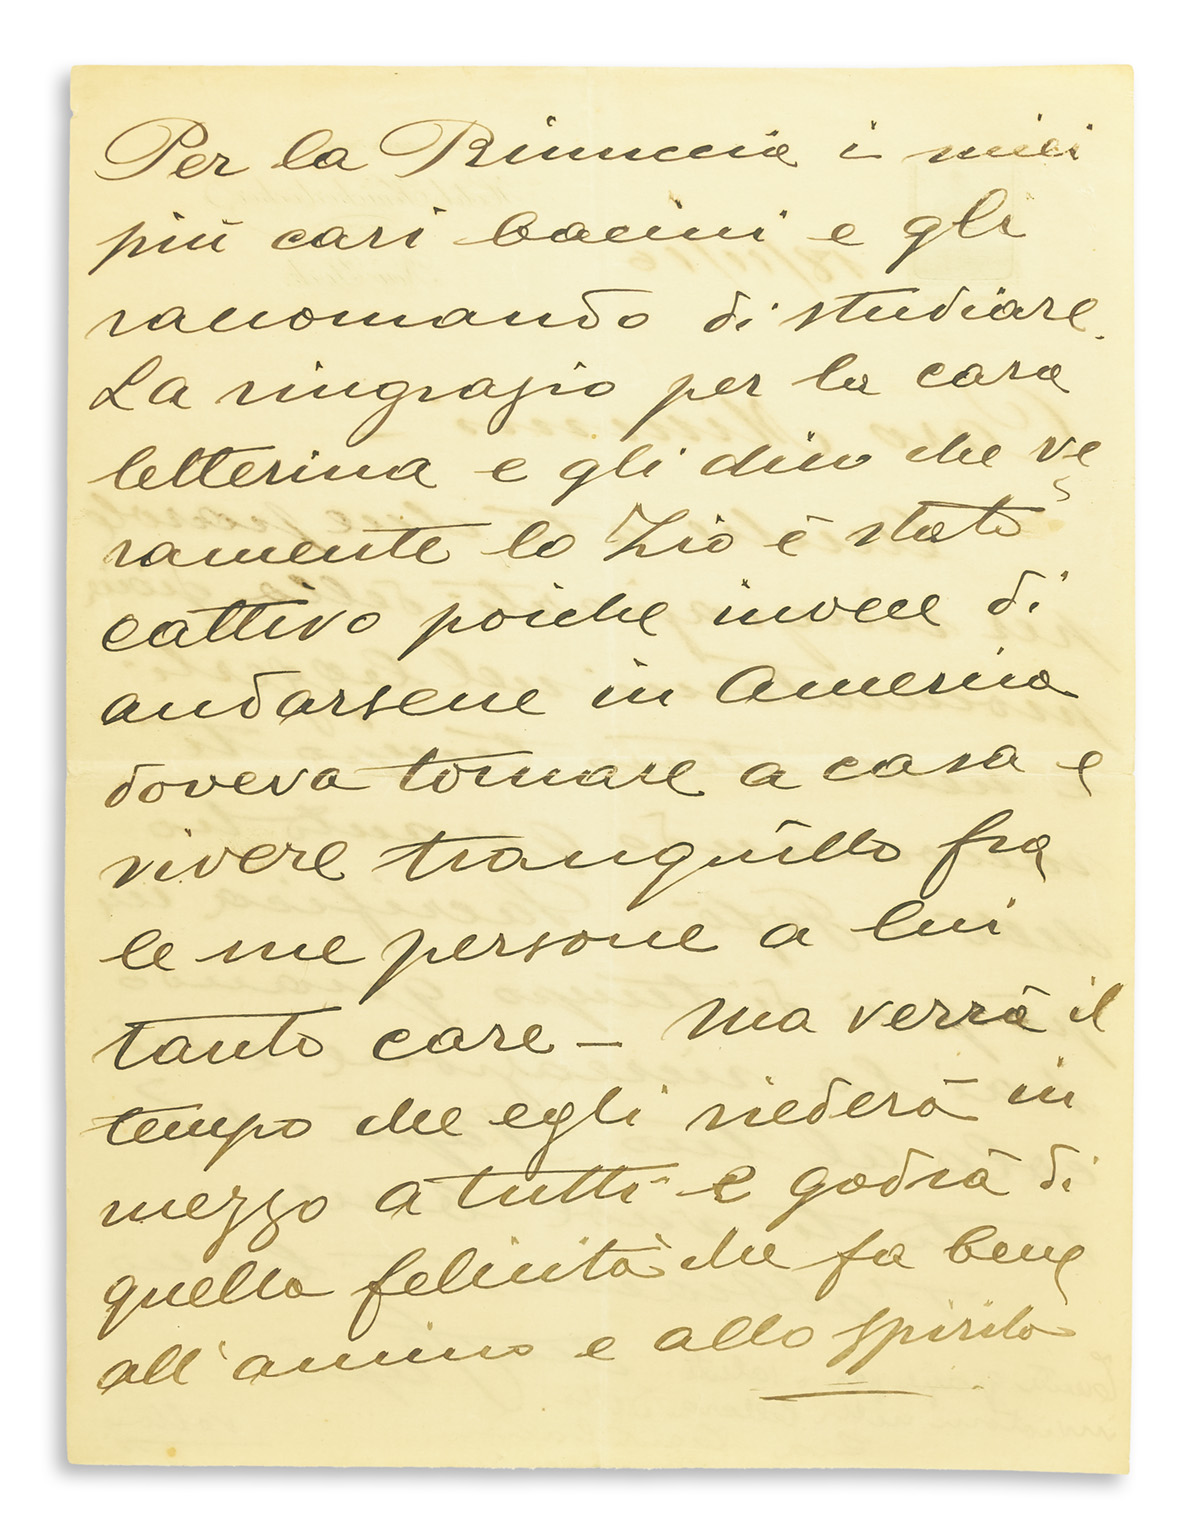 Per la Rinuccia i miei
più cari bacini e gli
raccomando di studiare.
La ringrazio per la cara
letterina e gli dico che ve
ramente lo Zio è stato
cattivo poiche invece di
andarsene in America
doveva tornare a casa e
vivere tranquillo fra
le sue persone a lui
tanto care – Ma verrà il
tempo che egli riederà in
mezzo a tutti e godrà di
quella felicità che fa bene
all'animo e allo spirito